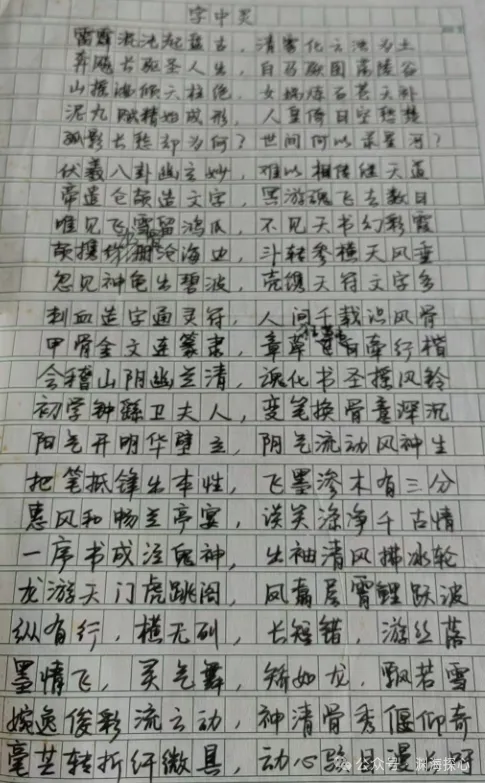 字中灵
雷霹混沌起盘古，清雾化云浊为土
奔腾长宛圣人出，白马驮图高陵谷
山摇海倾天柱绝，女娲炼石苍天补
泥丸赋精始成形，人皇倚目空愁楚
孤影长愁却为何？世间何以录星河？
伏羲八卦幽玄妙，难以相传继天道
帝遣仓颉造文字，冥游魂飞去数日
唯见飞霜留鸿爪，不见天书幻彩霞
颉携 册沧海边，斗转参横天风垂
忽见神龟出碧波，壳镌天符文字多
刺血造字通灵符，人间千载识风骨
甲骨金文连篆隶，章草 牵行楷
会稽山阴幽兰清，魂化书圣摇风铃
初学钟繇卫夫人，变笔换骨意深沉
阳气开明华壁立，阴气流动风神生
把笔抵锋出本性，飞墨渗木有三分
惠风和畅兰亭宴，谈笑涤净千古情
一序书成泣鬼神，出袖清风拂冰轮
龙游天门虎跳阁，凤翥层霄鲤跃波
纵有行，横无列，长短错，游丝落
墨情飞，灵气舞，矫如龙，飘若雪
婉逸俊彩流云动，神清骨秀偃仰奇
毫芒转折纤微具，动心骇目
公众号·渊海探心